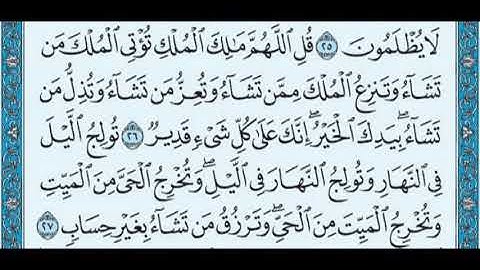 لَا يُظْلَمُونَ ۝٢٥ قُلِ ٱللَّهُمَّ مَٰلِكَ ٱلْمُلْكِ تُؤْتِى ٱلْمُلْكَ مَن
تَشَآءُ وَتَنزِعُ ٱلْمُلْكَ مِمَّن تَشَآءُ وَتُعِزُّ مَن تَشَآءُ وَتُذِلُّ مَن
تَشَآءُ ۖ بِيَدِكَ ٱلْخَيْرُ ۖ إِنَّكَ عَلَىٰ كُلِّ شَىْءٍ قَدِيرٌ ۝٢٦ تُولِجُ ٱلَّيْلَ
فِى ٱلنَّهَارِ وَتُولِجُ ٱلنَّهَارَ فِى ٱلَّيْلِ ۖ وَتُخْرِجُ ٱلْحَىَّ مِنَ ٱلْمَيِّتِ
وَتُخْرِجُ ٱلْمَيِّتَ مِنَ ٱلْحَىِّ ۖ وَتَرْزُقُ مَن تَشَآءُ بِغَيْرِ حِسَابٍ ۝٢٧